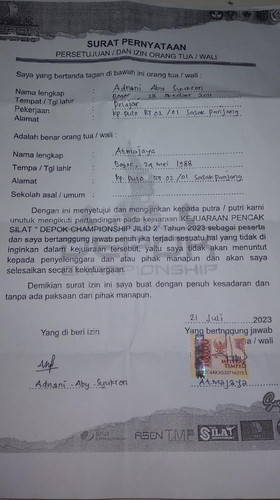 SURAT PERNYATAAN
PERSETUJUAN / DAN IZIN ORANG TUA / WALI
Saya yang bertanda tagan di bawah ini orang tua / wali :
Nama lengkap : Adnani Aby Syukron
Tempat / Tgl lahir : Bogor 28 2011
Pekerjaan : Pelajar
Alamat : kp. Pulo RT 02 /01 Sasak Panjang
Adalah benar orang tua / wali :
Nama lengkap : Atmajaya
Tempa / Tgl lahir : Bogor, 29 mei 1988
Alamat : kp. Pulo RT 02 / 01 Sasak Panjang
Sekolah asal / umum :
Dengan ini menyetujui dan mengijinkan kepada putra / putri kami
unutuk mengikuti pertandingan pada kejuaraan KEJUARAAN PENCAK
SILAT " DEPOK CHAMPIONSHIP JILID 2' Tahun 2023 sebagai peserta
dan saya bertanggung jawab penuh jika terjadi sesuatu hal yang tidak di
inginkan dalam kejuaraan tersebut, yaitu saya tidak akan menuntut
kepada penyelenggara dan atau pihak manapun dan akan saya
selesaikan secara kekeluargaan.
CHAMPIONSHIP
Demikian surat izin ini saya buat dengan penuh kesadaran dan
tanpa ada paksaan dari pihak manapun.
21 Juli 2023
Yang di beri izin
Yang bertnggung jawab
a / wali
METERAI
TEMPEL
Adnani - Aby - Syukron
Atmajaya
SILAT